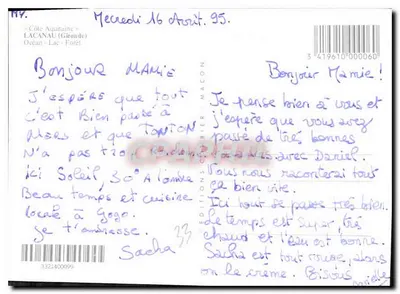 Mercredi 16 Août. 95.
- Côte Aquitaine -
LACANAU (Gironde)
Océan - Lac - Forêt
3 419610 000060
Bonjour MAMIE
J'ESPÈRE que tout
c'est Bien passé à
et que TONTON
N'a pas trop
Ici Soleil, 30° A l'ombre.
Beau temps et cuisine
locale à Gogo.
je t'embrasse.
Sacha
3322400099
EDITIONS
MACON
Bonjour Mamie !
Je pense bien à vous et
j'espère que vous avez
passé de très bonnes
avec Daniel.
Vous nous raconterez tout
ça bien vite.
Ici tout se passe très bien.
le temps est super, très
chaud et l'eau est bonne.
Sacha est tout rouge, alors
on le crème. Bisous